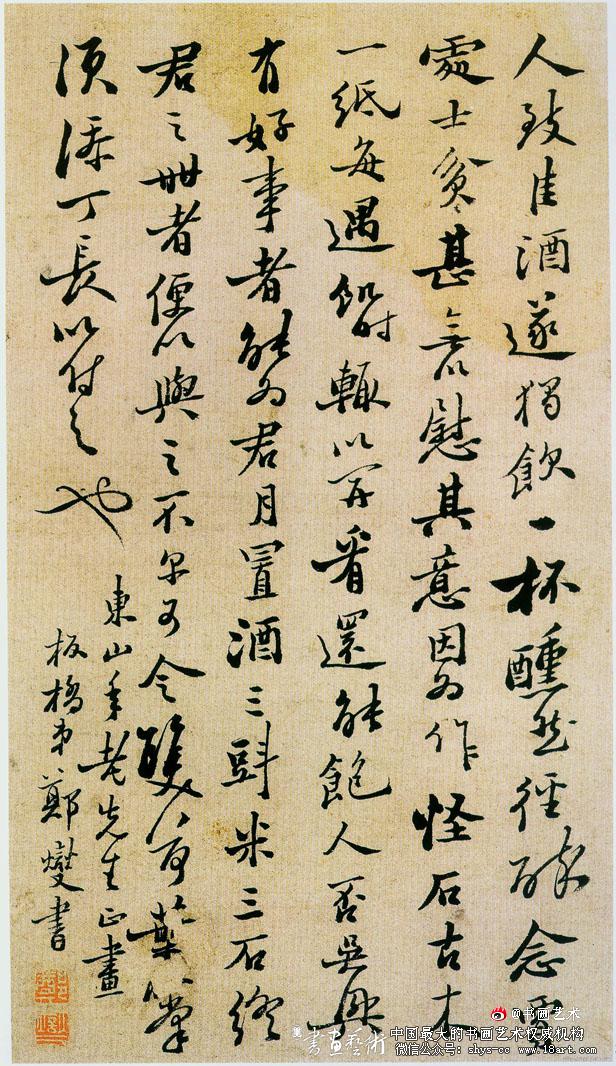 人致佳酒遂獨飲一杯醺然徑醉念賈
處士貧甚無以慰其意因為作怪石古木
一紙每遇飢時輒以開看還能飽人否吳興
有好事者能为君月置酒三斗米三石終
君之世者便以與之不尔可令雙荷葉
須添丁長以付之也
東山年老先生正畫
板橋弟鄭燮書
@书画艺术
書畫藝術
中国最大的书画艺术权威机构
微信公众号：shys-cc www.18art.com